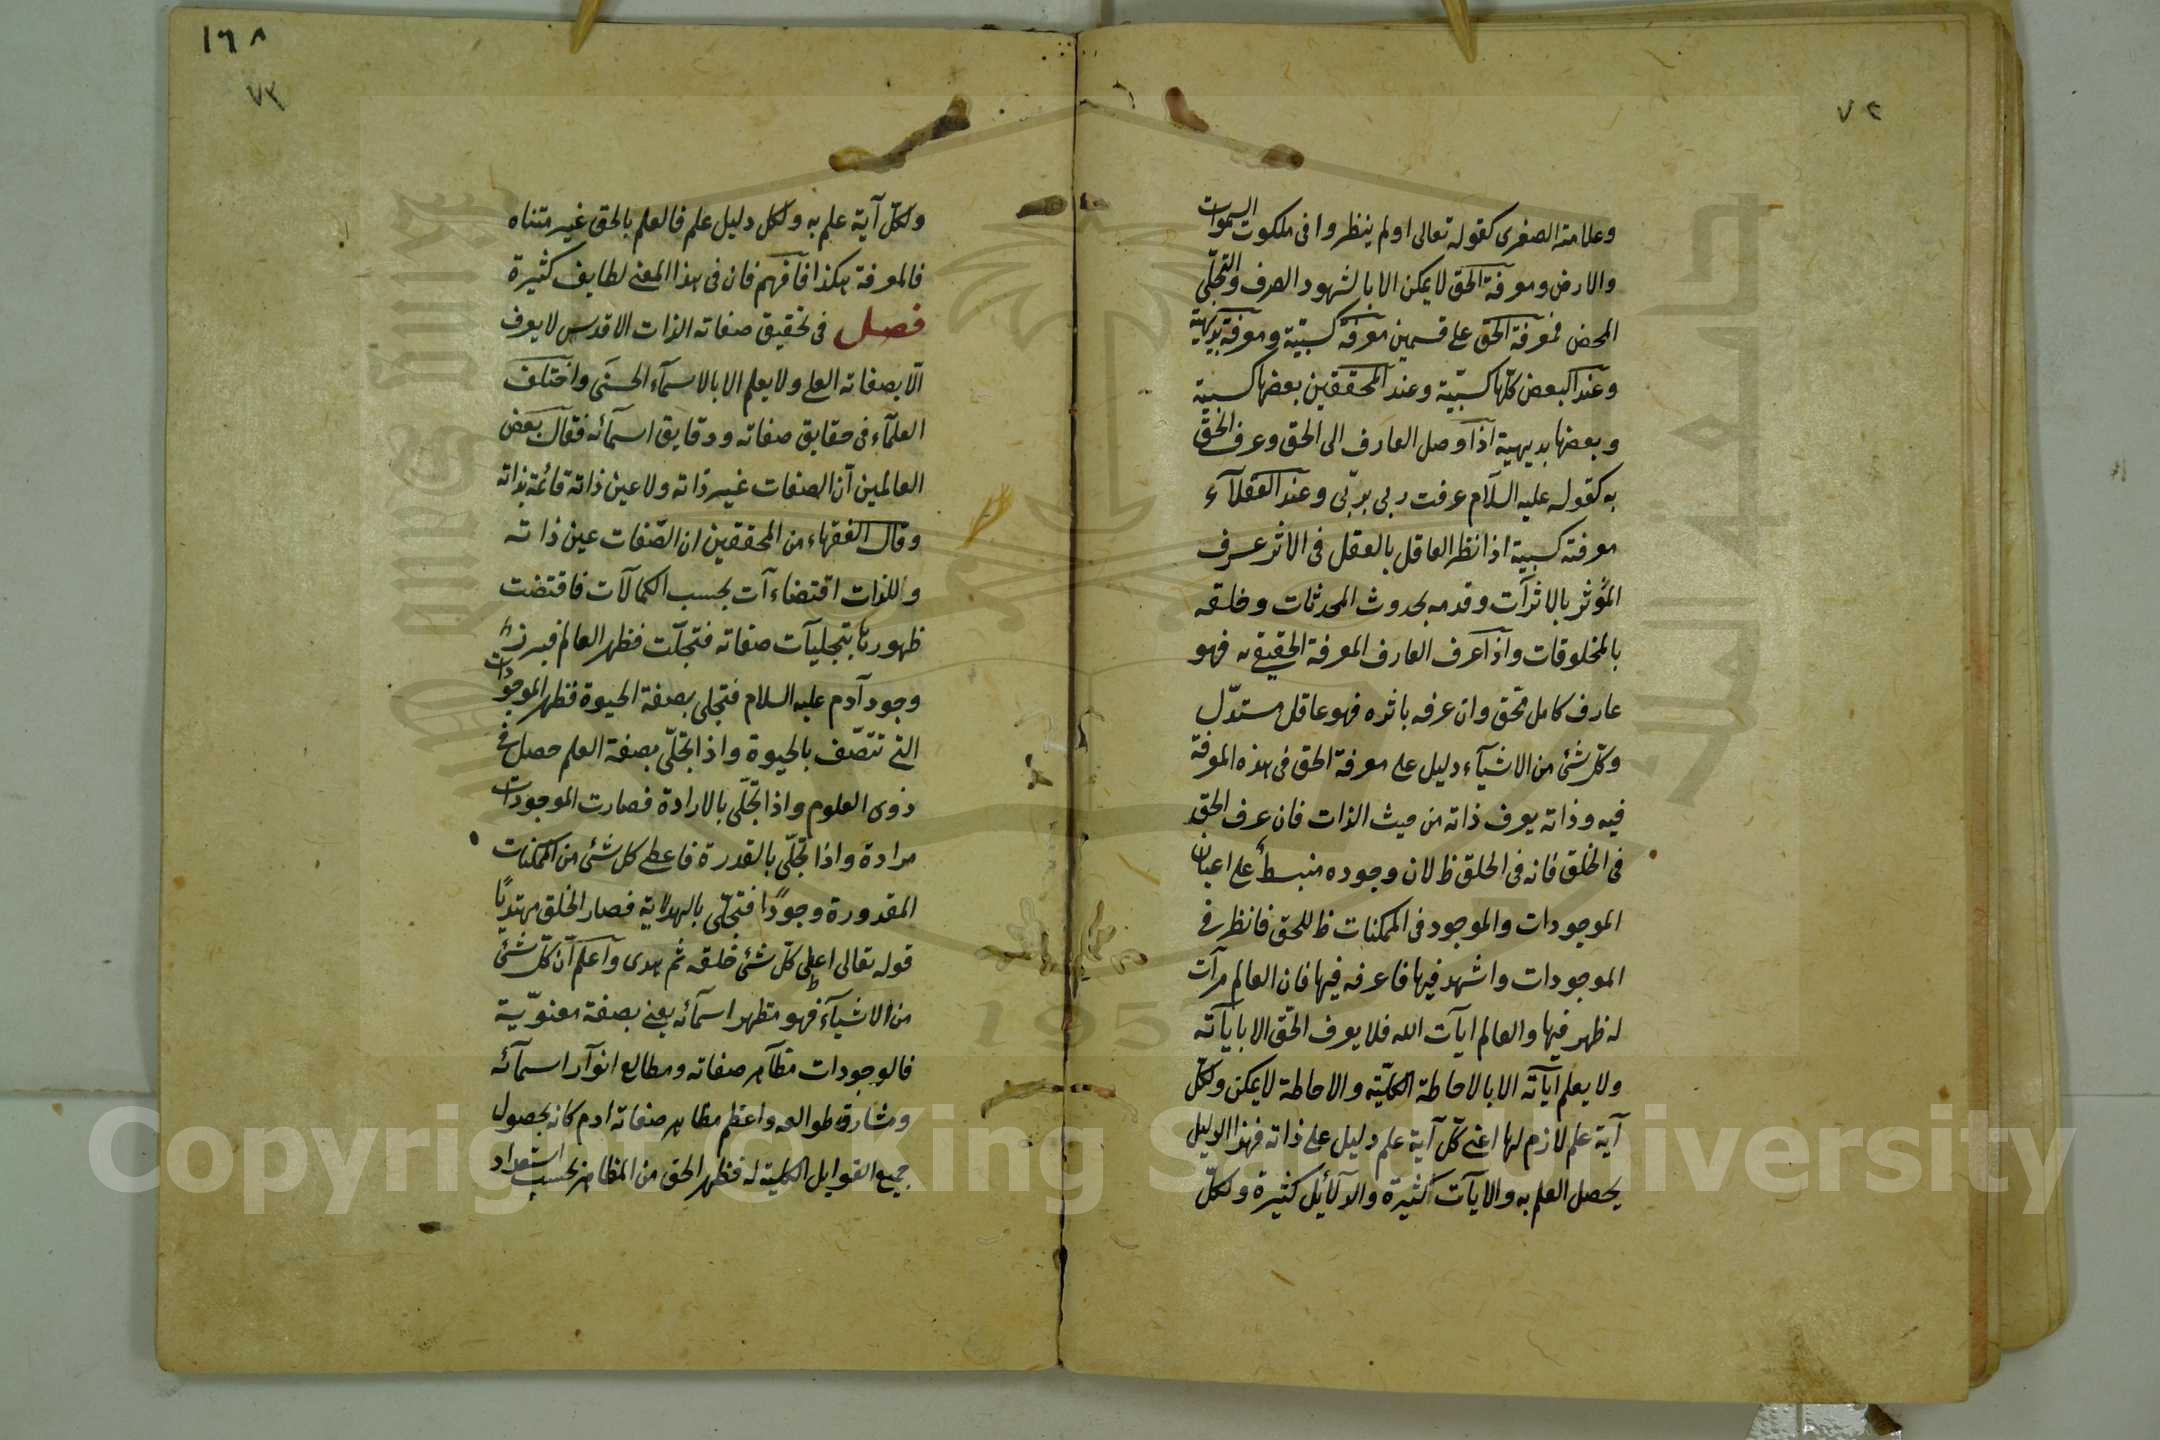 ٧٢
وعلامته الصغرى كقوله تعالى اولم ينظروا فى ملكوت السموات
والارض ومعرفة الحق لا يمكن الا بالشهود الصرف والتجلّى
المحض فمعرفة الحق على قسمين معرفة كسبيّة ومعرفة بديهية
وعند البعض كلّها كسبيّة وعند المحققين بعضها كسبية
وبعضها بديهية اذا وصل العارف الى الحق وعرف الحق
به كقوله عليه السلام عرفت ربى بربّى وعند العقلآء
معرفته كسبية اذا نظر العاقل بالعقل فى الاثر عرف
المؤثر بالاثرآت وقدمه بحدوث المحدثات وخلقه
بالمخلوقات واذا عرف العارف المعرفة الحقيقيه فهو
عارف كامل محّق وان عرفه باثره فهو عاقل مستدّل
وكلّ شئ من الاشيآء دليل على معرفة الحق فى هذه المعرفة
فيه وذاته يعرف ذاته من حيث الذات فان عرف الحق
فى الخلق فانه فى الخلق ظ لان وجوده منبسطٌ على اعيان
الموجودات والموجود فى الممكنات ظ للحق فانظر فى
الموجودات واشهد فيها فاعرفه فيها فان العالم مرآت
له ظهر فيها والعالم ايآت الله فلا يعرف الحّق الا بايآته
ولا يعلم ايآته الا بالاحاطة الكليّته والاحاطة لا يمكن ولكلّ
آية علم لازم لها اعنى كلّ آية علم دليل على ذاته فهذا الدليل
يحصل العلم به والايآت كثيرة والدلآئل كثيرة ولكلّ
١٦٨
٧٣
ولكلّ آية علم به ولكل دليل علم فالعلم بالحق غير متناه
فالمعرفة هكذا فآفهم فان فى هذا المعنى لطايف كثيرة
فصل فى تحقيق صفاته الذات الاقدس لا يعرف
الّا بصفاته العلى ولا يعلم الا بالاسمآء الحسنَى واختلف
العلمآء فى حقايق صفاته ودقايق اسمآئه فقال بعض
العالمين آن الصفات غير ذاته ولا عين ذاته قائمة بذاته
وقال الفقهاء من المحققين ان الصّفات عين ذاته
وللذات اقتضاءآت بحسب الكمالآت فاقتضت
ظهورها بتجليآت صفاته فتجلّت فظهر العالم فبرز
وجود آدم عليه السلام فتجلى بصفة الحيوة فظهر الموجودات
التى تتصّف بالحيوة واذا تجّلى بصفة العلم حصل فى
ذوى العلوم واذا تجّلى بالارادة فصارت الموجودات
مرادة واذا تجّلى بالقدرة فاعطى كل شئ من الممكنات
المقدورة وجودًا فتجّلى بالهداية فصار الخلق مهتديًا
قوله تعالى اعطى كلّ شئ خلقه ثم هدى وآعلم آن كلّ شئ
من الاشيآء فهو مظهر اسمآئه يعنى بصفة معنوّية
فالوجودات مظآهر صفاته ومطالع انوآر اسمآئه
ومشارق طوالعه واعظم مظاهر صفاته ادم كانه بحصول
جميع القوابل الكلية له فظهر الحق من المظاهر بحسب استعداد
Copyright © King Saud University